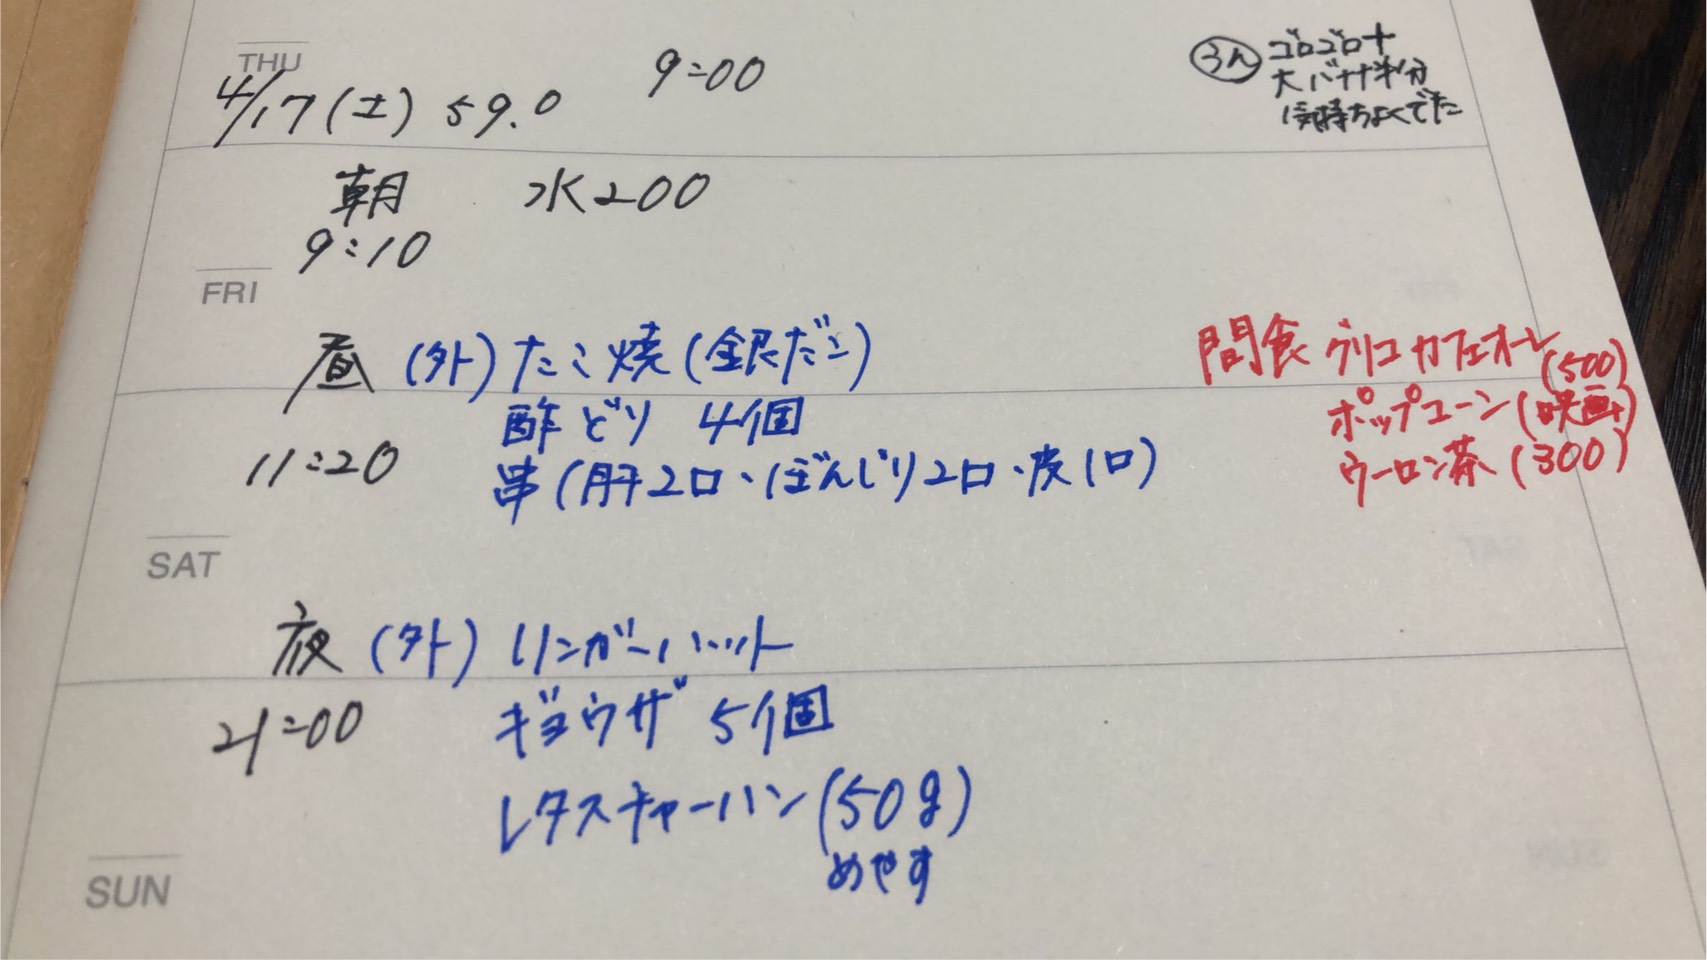 THU
4/17(土) 59.0 9:00
うん ゴロゴロ+
大バナナ半分
気持ちよくでた
朝 水200
9:10
FRI
昼 (外) たこ焼(銀だこ)
酢どり 4個
11:20 串(肝2口、ぼんじり2口、皮1口)
間食 グリコカフェオーレ(500)
ポップコーン(映画)
ウーロン茶(300)
SAT
夜 (外) リンガーハット
21:00 ギョウザ 5個
レタスチャーハン(50g)
めやす
SUN